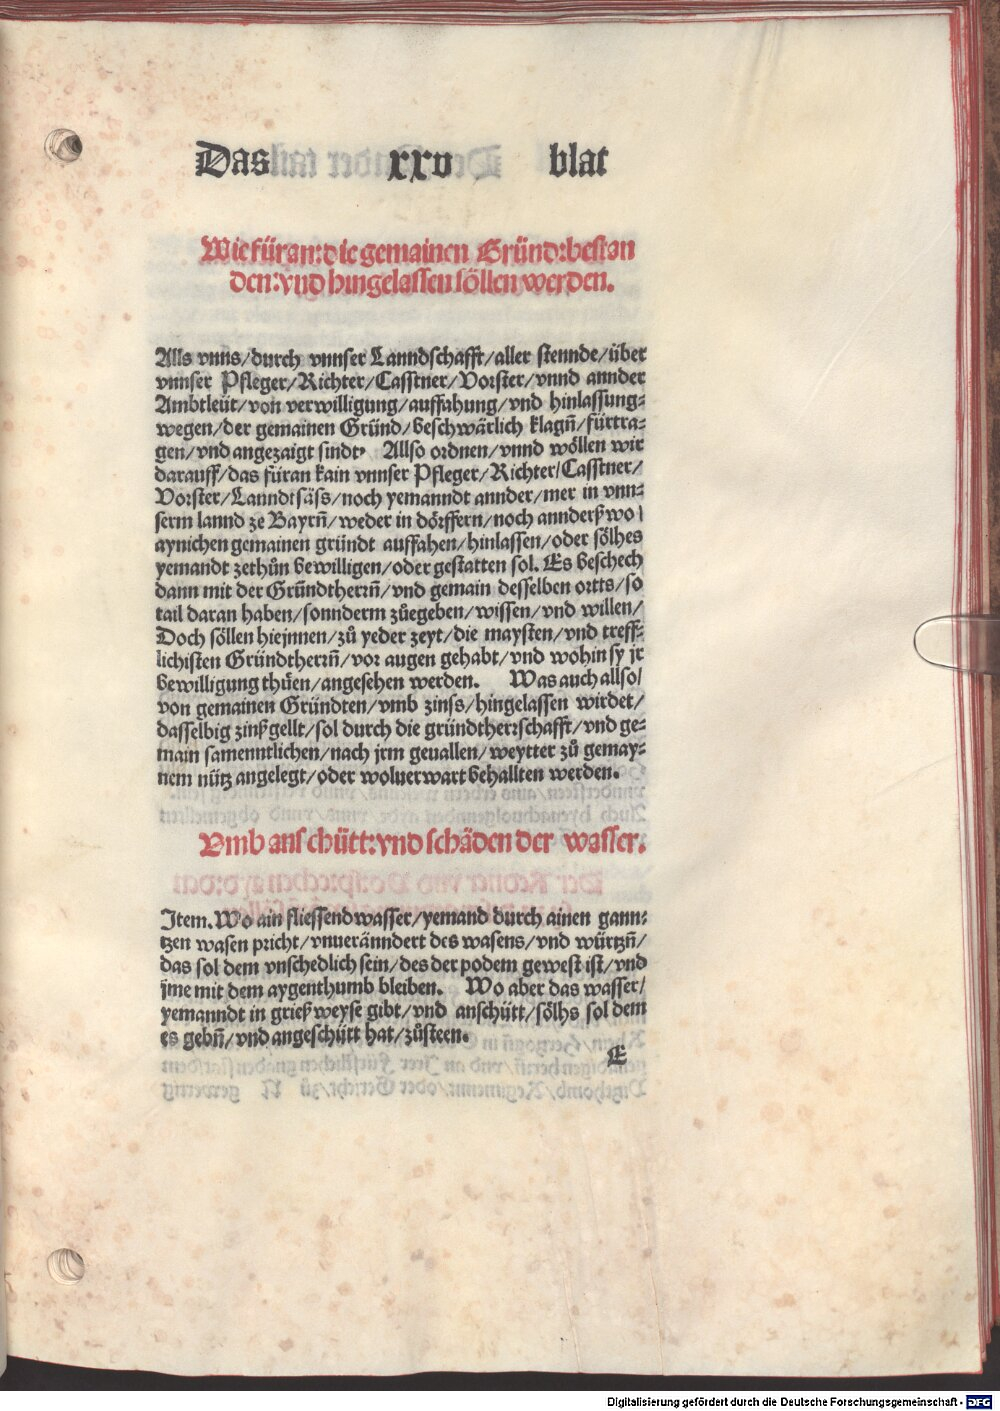 Das xxv blat
Wie füran: die gemainen Gründ: bestan
den: vnd hingelassen söllen werden.
Alls vnns/durch vnnser Lanndschafft/aller stennde/über
vnnser Pfleger/Richter/Casstner/Vorster/vnnd annder
Ambtleüt/von verwilligung/auffahung/vnd hinlassung⸗
wegen/der gemainen Gründ/beschwärlich klagñ/fürtra⸗
gen/vnd angezaigt sindt. Allso ordnen/vnnd wöllen wir
darauff/das füran kain vnnser Pfleger/Richter/Casstner/
Vorster/Lanndtsäss/noch yemanndt annder/mer in vnn⸗
serm lannd ze Bayrñ/weder in dörffern/noch annderß wo/
aynichen gemainen gründt auffahen/hinlassen/oder sölhes
yemandt zethůn bewilligen/oder gestatten sol. Es beschech
dann mit der Gründtherrñ/vnd gemain desselben ortts/so
tail daran haben/sonnderm zůegeben/wissen/vnd willen/
Doch söllen hiejnnen/zů yeder zeyt/die maysten/vnd treff⸗
lichisten Gründtherrñ/vor augen gehabt/vnd wohin sy jr
bewilligung thüen/angesehen werden. Was auch allso/
von gemainen Gründten/vmb zinss/hingelassen wirdet/
dasselbig zinßgellt/sol durch die gründtherrschafft/vnd ge⸗
main samenntlichen/nach jrm geuallen/weytter zů gemay⸗
nem nütz angelegt/oder woluerwart behallten werden.
Vmb anschütt: vnd schäden der wasser.
Item. Wo ain fliessend wasser/yemand durch ainen gann⸗
tzen wasen pricht/vnueränndert des wasens/vnd würtzñ/
das sol dem vnschedlich sein/des der podem gewest ist/vnd
jme mit dem aygenthumb bleiben. Wo aber das wasser/
yemanndt in grieß weyse gibt/vnd anschütt/sölhs sol dem
es gebñ/vnd angeschütt hat/zůsteen.
E
Digitalisierung gefördert durch die Deutsche Forschungsgemeinschaft - DFG